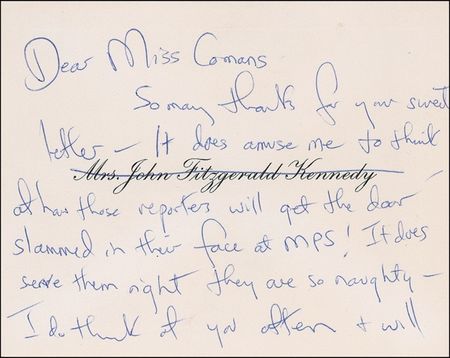 Dear Miss Comans
So many thanks for your sweet
letter — It does amuse me to think
Mrs. John Fitzgerald Kennedy
at how those reporters will get the door
slammed in their face at MPS! It does
serve them right they are so naughty —
I do think of you often & will